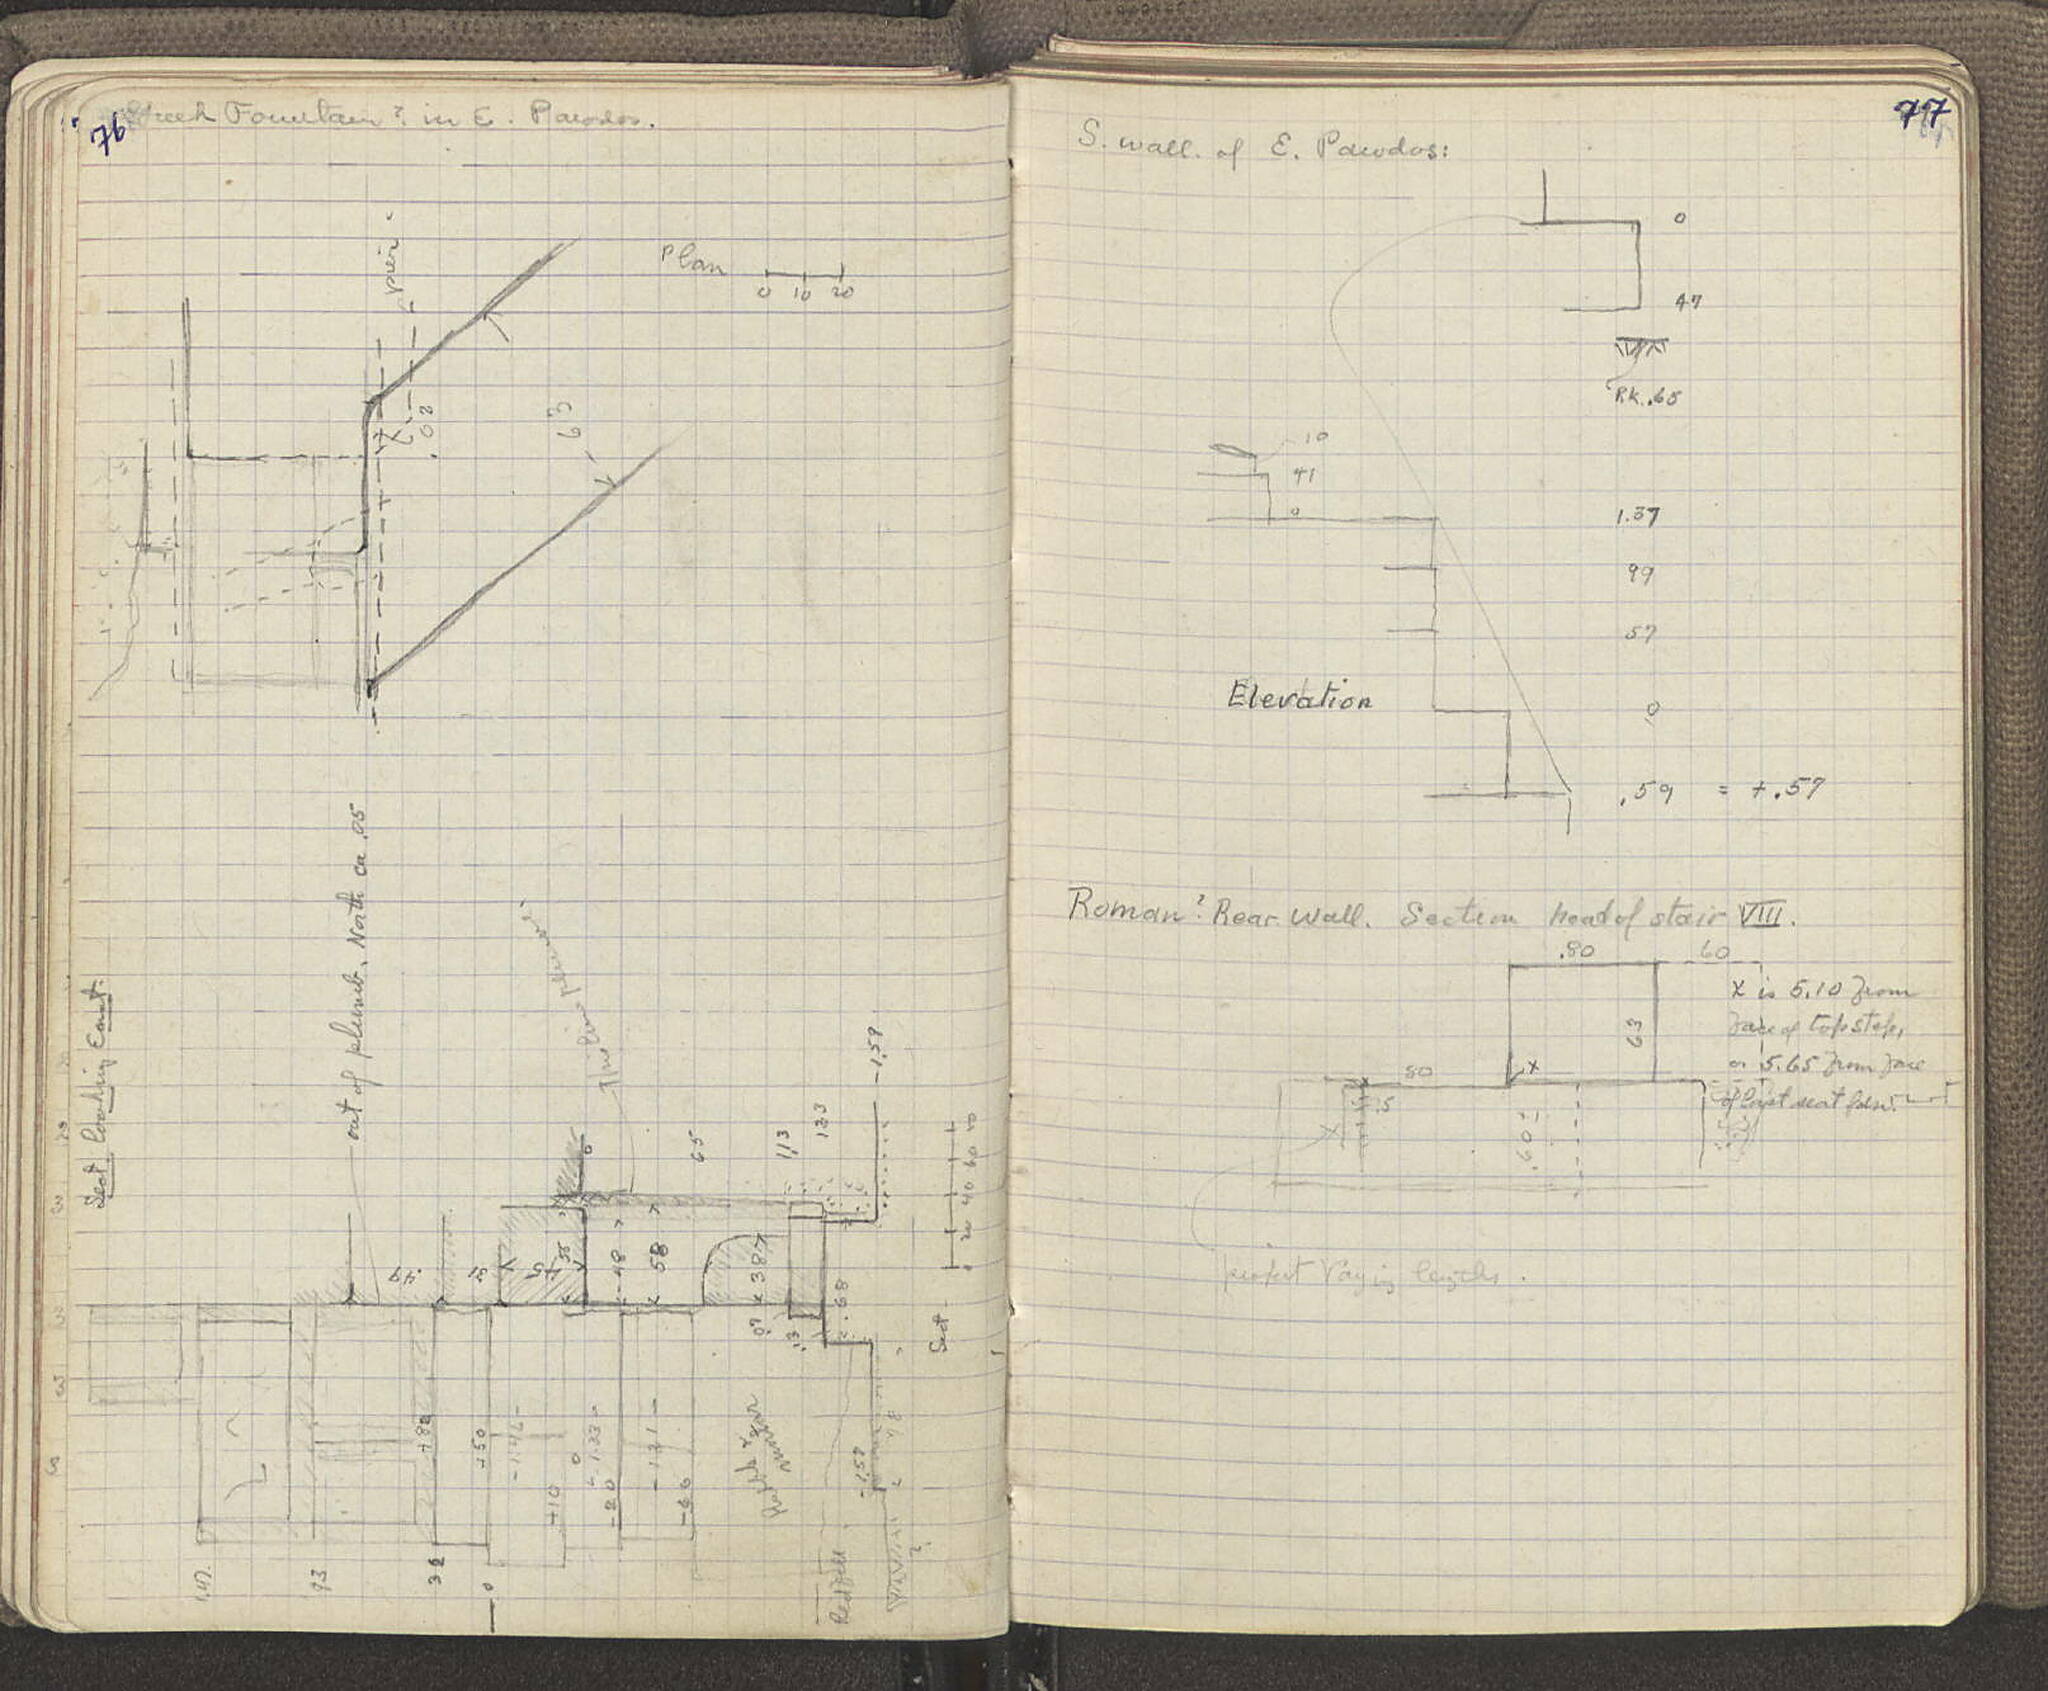 76
Greek Fountain? in E. Parodos.
Plan
0 10 20
pier
.02
63
out of plumb, North ca .05
Sect. looking East:
This line plumb
-1.59
0
65
1.13
1.33
.49
31
.45
48
58
38
.07
.13
.68
0 20 40 60
Sect
+82
+50
-1.46-
+10
0
-1.33-
-20
-1.31-
-66
-1.59
Red fill
1.47
93
0
77
S. wall. of E. Parodos:
0
47
Rk. .65
10
41
0
1.37
99
57
Elevation
0
.59 = +.57
Roman? Rear Wall. Section head of stair VIII.
.80 60
63
x
x is 5.10 from
face of top step,
or 5.65 from face
of last seat fdn.
50
15
.60±
project varying lengths.